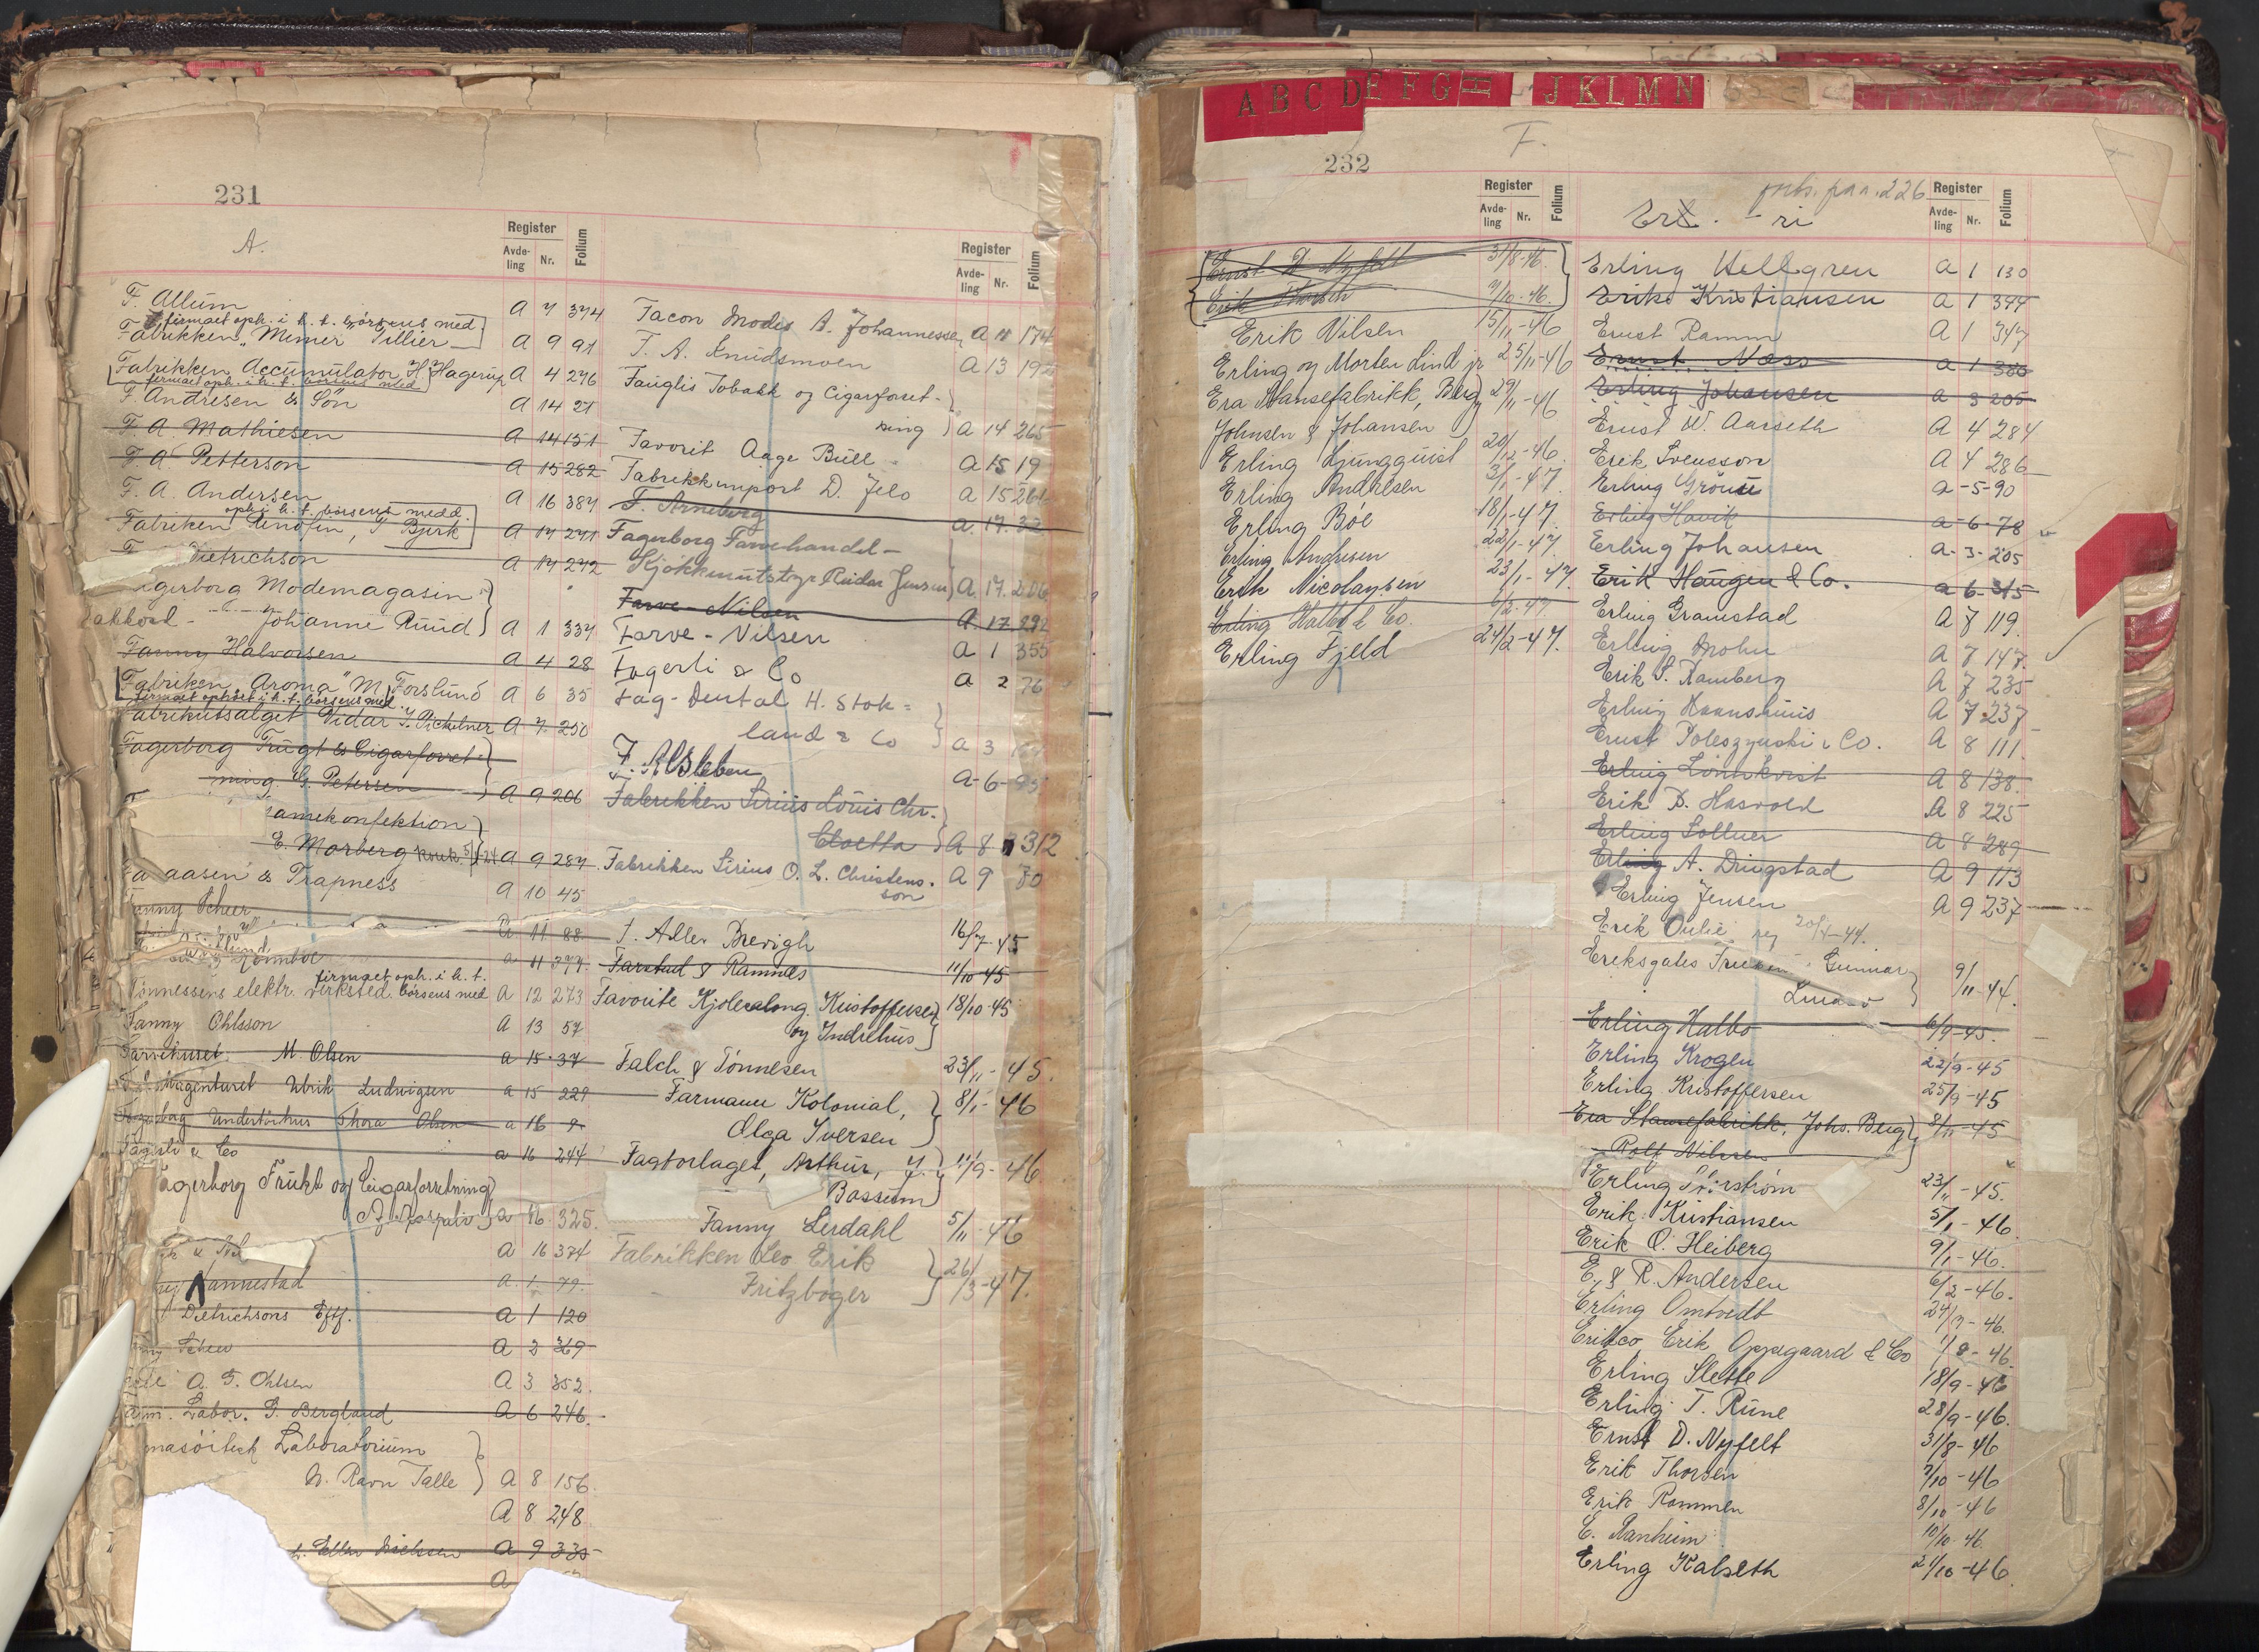 231
A.
Register
Avde-
ling
Nr.
Folium
F. Allum A 7 374
firmaet oph. i h. t. börsens med.
Fabrikken "Mimer" Tillier A 9 91
Fabrikken Accumulator H. Hagerup A 4 276
firmaet oph. i h. t. börsens med.
F. Andresen & Sön A 14 21
F. A. Mathiesen A 14 151
F. A. Petterson A 15 282
F. A. Andersen A 16 387
oph. i h. t. börsens medd.
Fabriken Bjerk A 17 271
Dietrichson A 17 272
gerborg Modemagasin
Johanne Ruud A 1 337
Fanny Halvorsen A 4 28
Fabriken "Aroma" M. Forslund A 6 35
firmaet ophört i h. t. börsens med.
Fabrikutsalget Vidar A 7 250
Fagerborg Frugt & Cigarforret-
ning G. Petersen A 9 206
amekonfektion
E. Morberg A 9 287
aasen & Trapness A 10 45
Fanny Scheer
A 11 88
A 11 377
firmaet oph. i h. t.
Tönnessens elektr. verksted. börsens med A 12 273
Fanny Ohlsson A 13 57
Farvehuset M. Olsen a 15 37
agenturet Ulrik Ludvigsen a 15 229
Fagerborg Undertöihus Thora Olsen a 16 9
Fagerli & Co a 16 244
Fagerborg Frukt og Cigarforretning
a 16 325.
A 16 374
annestad A. 1. 79.
Dietrichsons Eftf. A 1 120
A 2 369
A. F. Ohlsen A 3 352.
Labor. G. Berglund A 6 246.
masöitisk Laboratorium
N. Ravn Talle A 8 156.
A 8 248
Ellen A 9 335
A
Register
Avde-
ling
Nr.
Folium
Facon Modes A. Johannessen A 11 174
F. A. Knudsmoen A 13 19
Fauglis Tobakk og Cigarforret-
ning A 14 265
Favorit Aage Bull A 15 19
Fabrikkimport D. Jelo A 15 261
F. Arneberg a. 17. 32
Fagerborg Farvehandel-
Kjökkenutstyr Reidar Jensen A. 17. 206
Farve-Nilsen A. 17. 292
Farve-Nilsen A 1 355
Fagerli & Co A 2 76
Fag-Dental H. Stok=
land & Co a 3
F. Alsleben A-6-
Fabrikken Sirius Louis Chr.
Cloetta A 8 312
Fabrikken Sirius O. L. Christens.
son A 9 80
F. Aller Brevigh 16/7-45
Farstad & Ramnæs 11/10-45
Favorite Kjolesalong, Kristoffersen 18/10-45
og Indrehus
Falch & Tönnesen 23/11-45.
Farmann Kolonial, 8/1-46
Olga Iversen
Fagforlaget, Arthur, J. 11/9-46
Bossum
Fanny Lerdahl 5/11-46
Fabrikken Leo Erik 26/3-47.
Fritzböger
A B C D E F G H J K L M N
F.
232
Register
Avde-
ling
Nr.
Folium
Ernst D. Nyfelt 31/8-46.
Erik Thorsen 7/10-46.
Erik Nilsen 15/11-46
Erling og Morten Lind jr 25/11-46
Era Stansefabrikk, Berg 29/11-46
Johnsen & Johansen
Erling Ljungquist 20/12-46.
Erling Andresen 3/1-47.
Erling Böe 18/1-47.
Erling Andresen 22/1-47.
Erik Nicolaysen 23/1-47.
Erling Halbo & Co. 1/2-47.
Erling Fjeld 24/2-47.
forts. paa 226
Er. - ri
Register
Avde-
ling
Nr.
Folium
Erling Hellgren a 1 130
Erik Kristiansen a 1 344
Ernst Ramm A 1 347
Ernst Næss a 1 380
Erling Johansen a 3 205
Ernst W. Aarseth A 4 284
Erik Svensson A 4 286
Erling Grönli a-5-90
Erling Havik a-6-78
Erling Johansen a-3-205
Erik Haugen & Co. a-6-315
Erling Gramstad A 7 119.
Erling Mohn A 7 147.
Erik S. Ramberg A 7 235
Erling Haanshuus A 7 237
Ernst Poleszynski & Co. A 8 111.
Erling Lönnkvist A 8 138.
Erik D. Hasvold A 8 225
Erling Sollner A 8 289
Erling A. Dringstad A 9 113
Erling Jensen A 9 237
Erik Oulie reg 20/4-44.
Eriksgates Gunnar 9/11-44.
Erling Halbo 6/9-45.
Erling Krogen 22/9-45
Erling Kristoffersen 25/9-45
Era Stansefabrikk, Johs. Berg 8/11-45
Rolf Nilsen
Erling 23/11-45.
Erik Kristiansen 5/1-46.
Erik O. Heiberg 9/1-46.
E. & R. Andersen 6/2-46.
Erling Omtvedt 24/7-46.
Erikco Erik Oppegaard & Co 1/8-46.
Erling Slette 18/9-46
Erling T. Rune 28/9-46.
Ernst D. Nyfelt 31/8-46
Erik Thorsen 7/10-46
Erik Rommen 8/10-46
E. Ranheim 10/10 46.
Erling Kalseth 21/10-46.